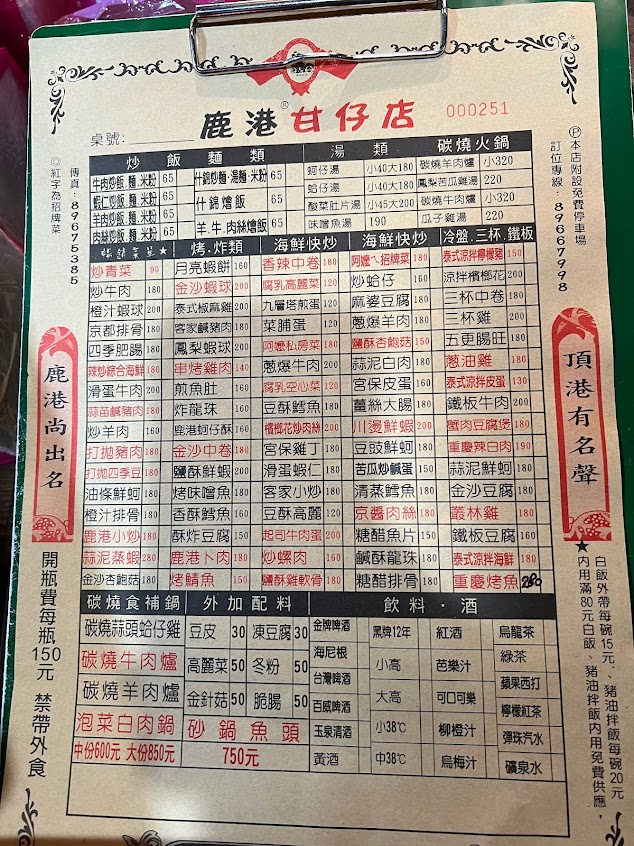 鹿港®甘仔店
000251
桌號:
傳真:89675385
◎紅字為招牌菜
Ⓟ本店附設免費停車場
訂位專線:89667998
炒飯麵類
牛肉炒飯.麵.米粉 65 什錦炒麵.湯麵.米粉 65
蝦仁炒飯.麵.米粉 65 什錦燴飯 65
羊肉炒飯.麵.米粉 65 羊.牛.肉絲燴飯 65
肉絲炒飯.麵.米粉 65
湯類
蚵仔湯 小40大180
蛤仔湯 小40大180
酸菜肚片湯 小45大200
味噌魚湯 190
碳燒火鍋
碳燒羊肉爐 小320
鳳梨苦瓜雞湯 220
碳燒牛肉爐 小320
瓜子雞湯 220
炒青菜 90
炒牛肉 180
橙汁蝦球 200
京都排骨 180
四季肥腸 180
辣炒綜合海鮮 180
滑蛋牛肉 200
蒜苗鹹豬肉 180
炒羊肉 180
打拋豬肉 180
打拋四季豆 180
油條鮮蚵 180
橙汁排骨 180
鹿港小炒 180
蒜泥蒸蝦 280
金沙杏鮑菇 180
烤.炸類
月亮蝦餅 160
金沙蝦球 200
泰式椒麻雞 200
客家鹹豬肉 180
鳳梨蝦球 200
串烤雞肉 140
煎魚肚 160
炸龍珠 160
鹿港蚵仔酥 160
金沙中卷 180
鹽酥鮮蝦 200
烤味噌魚 180
香酥鱈魚 180
酥炸豆腐 150
鹿港卜肉 180
烤鯖魚 150
海鮮快炒
香辣中卷 180
腐乳高麗菜 120
九層塔煎蛋 120
菜脯蛋 120
阿嬤私房菜 180
蔥爆牛肉 200
腐乳空心菜 120
豆酥鱈魚 180
檳榔花炒肉絲 200
宮保雞丁 180
滑蛋蝦仁 180
客家小炒 180
豆酥高麗 120
起司牛肉蛋 200
炒螺肉 160
鹽酥雞軟骨 180
海鮮快炒
阿嬤ㄟ招牌菜 180
炒蛤仔 160
麻婆豆腐 150
蔥爆羊肉 180
鹽酥杏鮑菇 150
蒜泥白肉 180
宮保皮蛋 160
薑絲大腸 180
川燙鮮蝦 200
豆豉鮮蚵 180
苦瓜炒鹹蛋 150
清蒸鱈魚 180
京醬肉絲 180
糖醋魚片 150
鹹酥龍珠 180
糖醋排骨 180
冷盤.三杯.鐵板
泰式涼拌檸檬豬 150
涼拌檳榔花 200
三杯中卷 180
三杯雞 200
五更腸旺 180
蔥油雞 180
泰式涼拌皮蛋 130
鐵板牛肉 200
蟹肉豆腐煲 180
重慶辣白肉 190
蒜泥鮮蚵 180
金沙豆腐 180
叢林雞 180
鐵板豆腐 160
泰式涼拌海鮮 180
重慶烤魚 280
碳燒食補鍋
碳燒蒜頭蛤仔雞
碳燒牛肉爐
碳燒羊肉爐
泡菜白肉鍋
中份600元 大份850元
外加配料
豆皮 30 凍豆腐 30
高麗菜 50 冬粉 50
金針菇 50 脆腸 50
砂鍋魚頭
750元
飲料.酒
金牌啤酒
海尼根
台灣啤酒
百威啤酒
玉泉清酒
黃酒
黑牌12年
小高
大高
小38℃
中38℃
紅酒
芭樂汁
可口可樂
柳橙汁
烏梅汁
烏龍茶
綠茶
蘋果西打
檸檬紅茶
彈珠汽水
礦泉水
鹿港尚出名
頂港有名聲
開瓶費每瓶150元 禁帶外食
★白飯外帶每碗15元、豬油拌飯每碗20元
內用滿80元白飯、豬油拌飯內用免費供應,